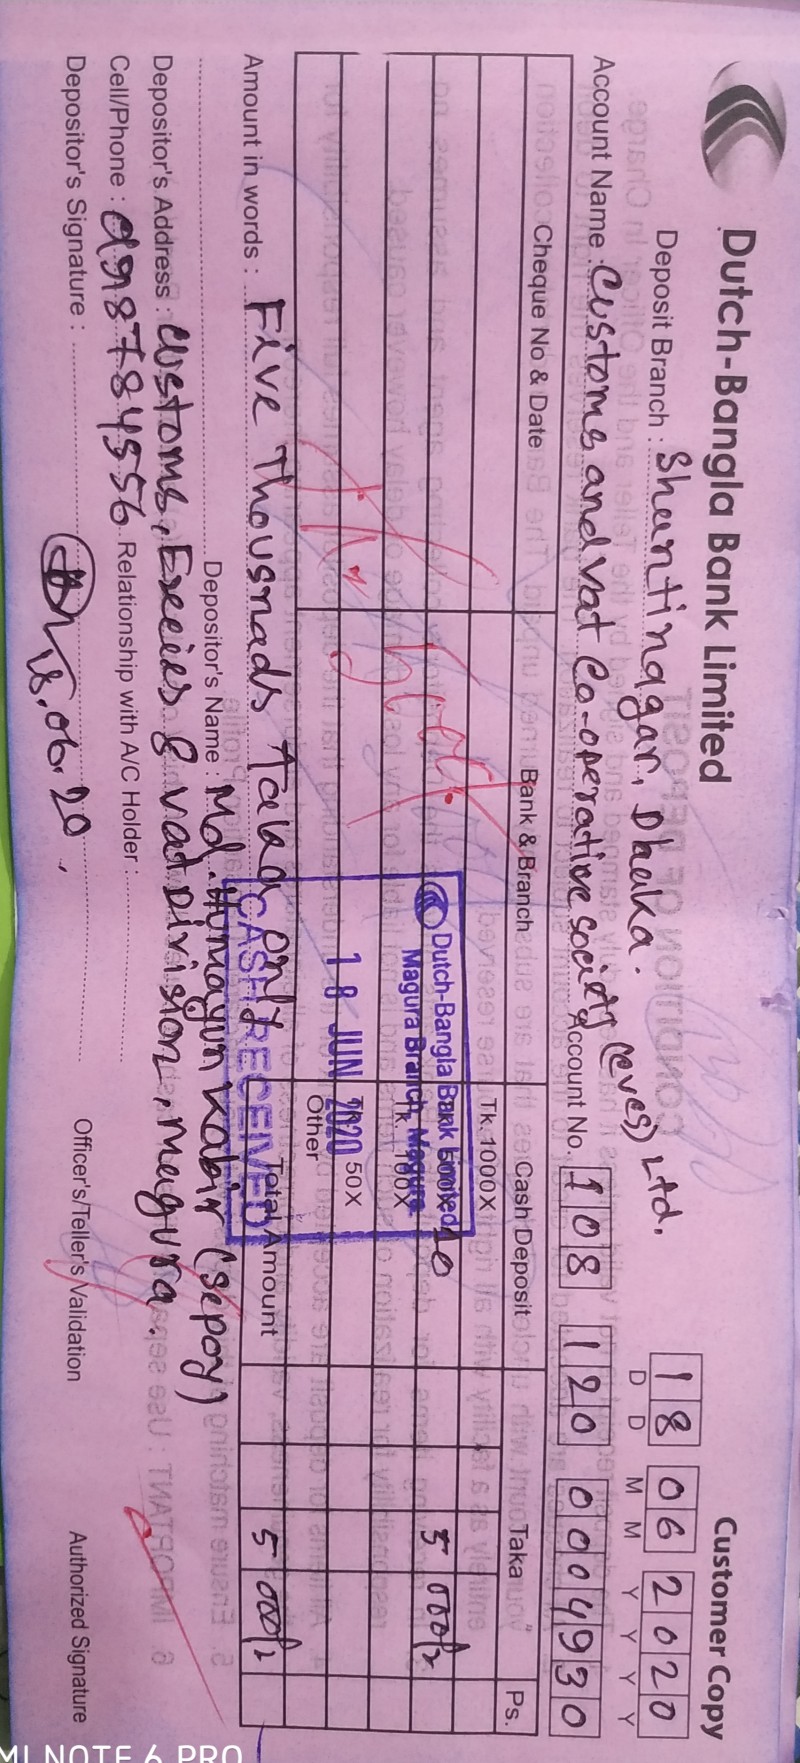 Dutch-Bangla Bank Limited
Customer Copy
Deposit Branch : Shantinagar, Dhaka.
18 06 2020
D D M M Y Y Y Y
Account Name : Customs and vat Co-operative society (cves) Ltd.
Account No. 108 120 0004930
Cheque No & Date Bank & Branch Cash Deposit Taka Ps.
Tk. 1000X
Tk. 500X 10 5 000/=
Tk. 100X
Tk. 50X
Other
Total Amount 5 000/=
Dutch-Bangla Bank Limited
Magura Branch, Magura
18 JUN 2020
CASH RECEIVED
Amount in words : Five Thousnads taka only
Depositor's Name : Md. Humayun Kabir (sepoy)
Depositor's Address : Customs, Excies & vat Division, Magura.
Cell/Phone : Relationship with A/C Holder :
Depositor's Signature : 18.06.20
Officer's/Teller's Validation
Authorized Signature
MI NOTE 6 PRO